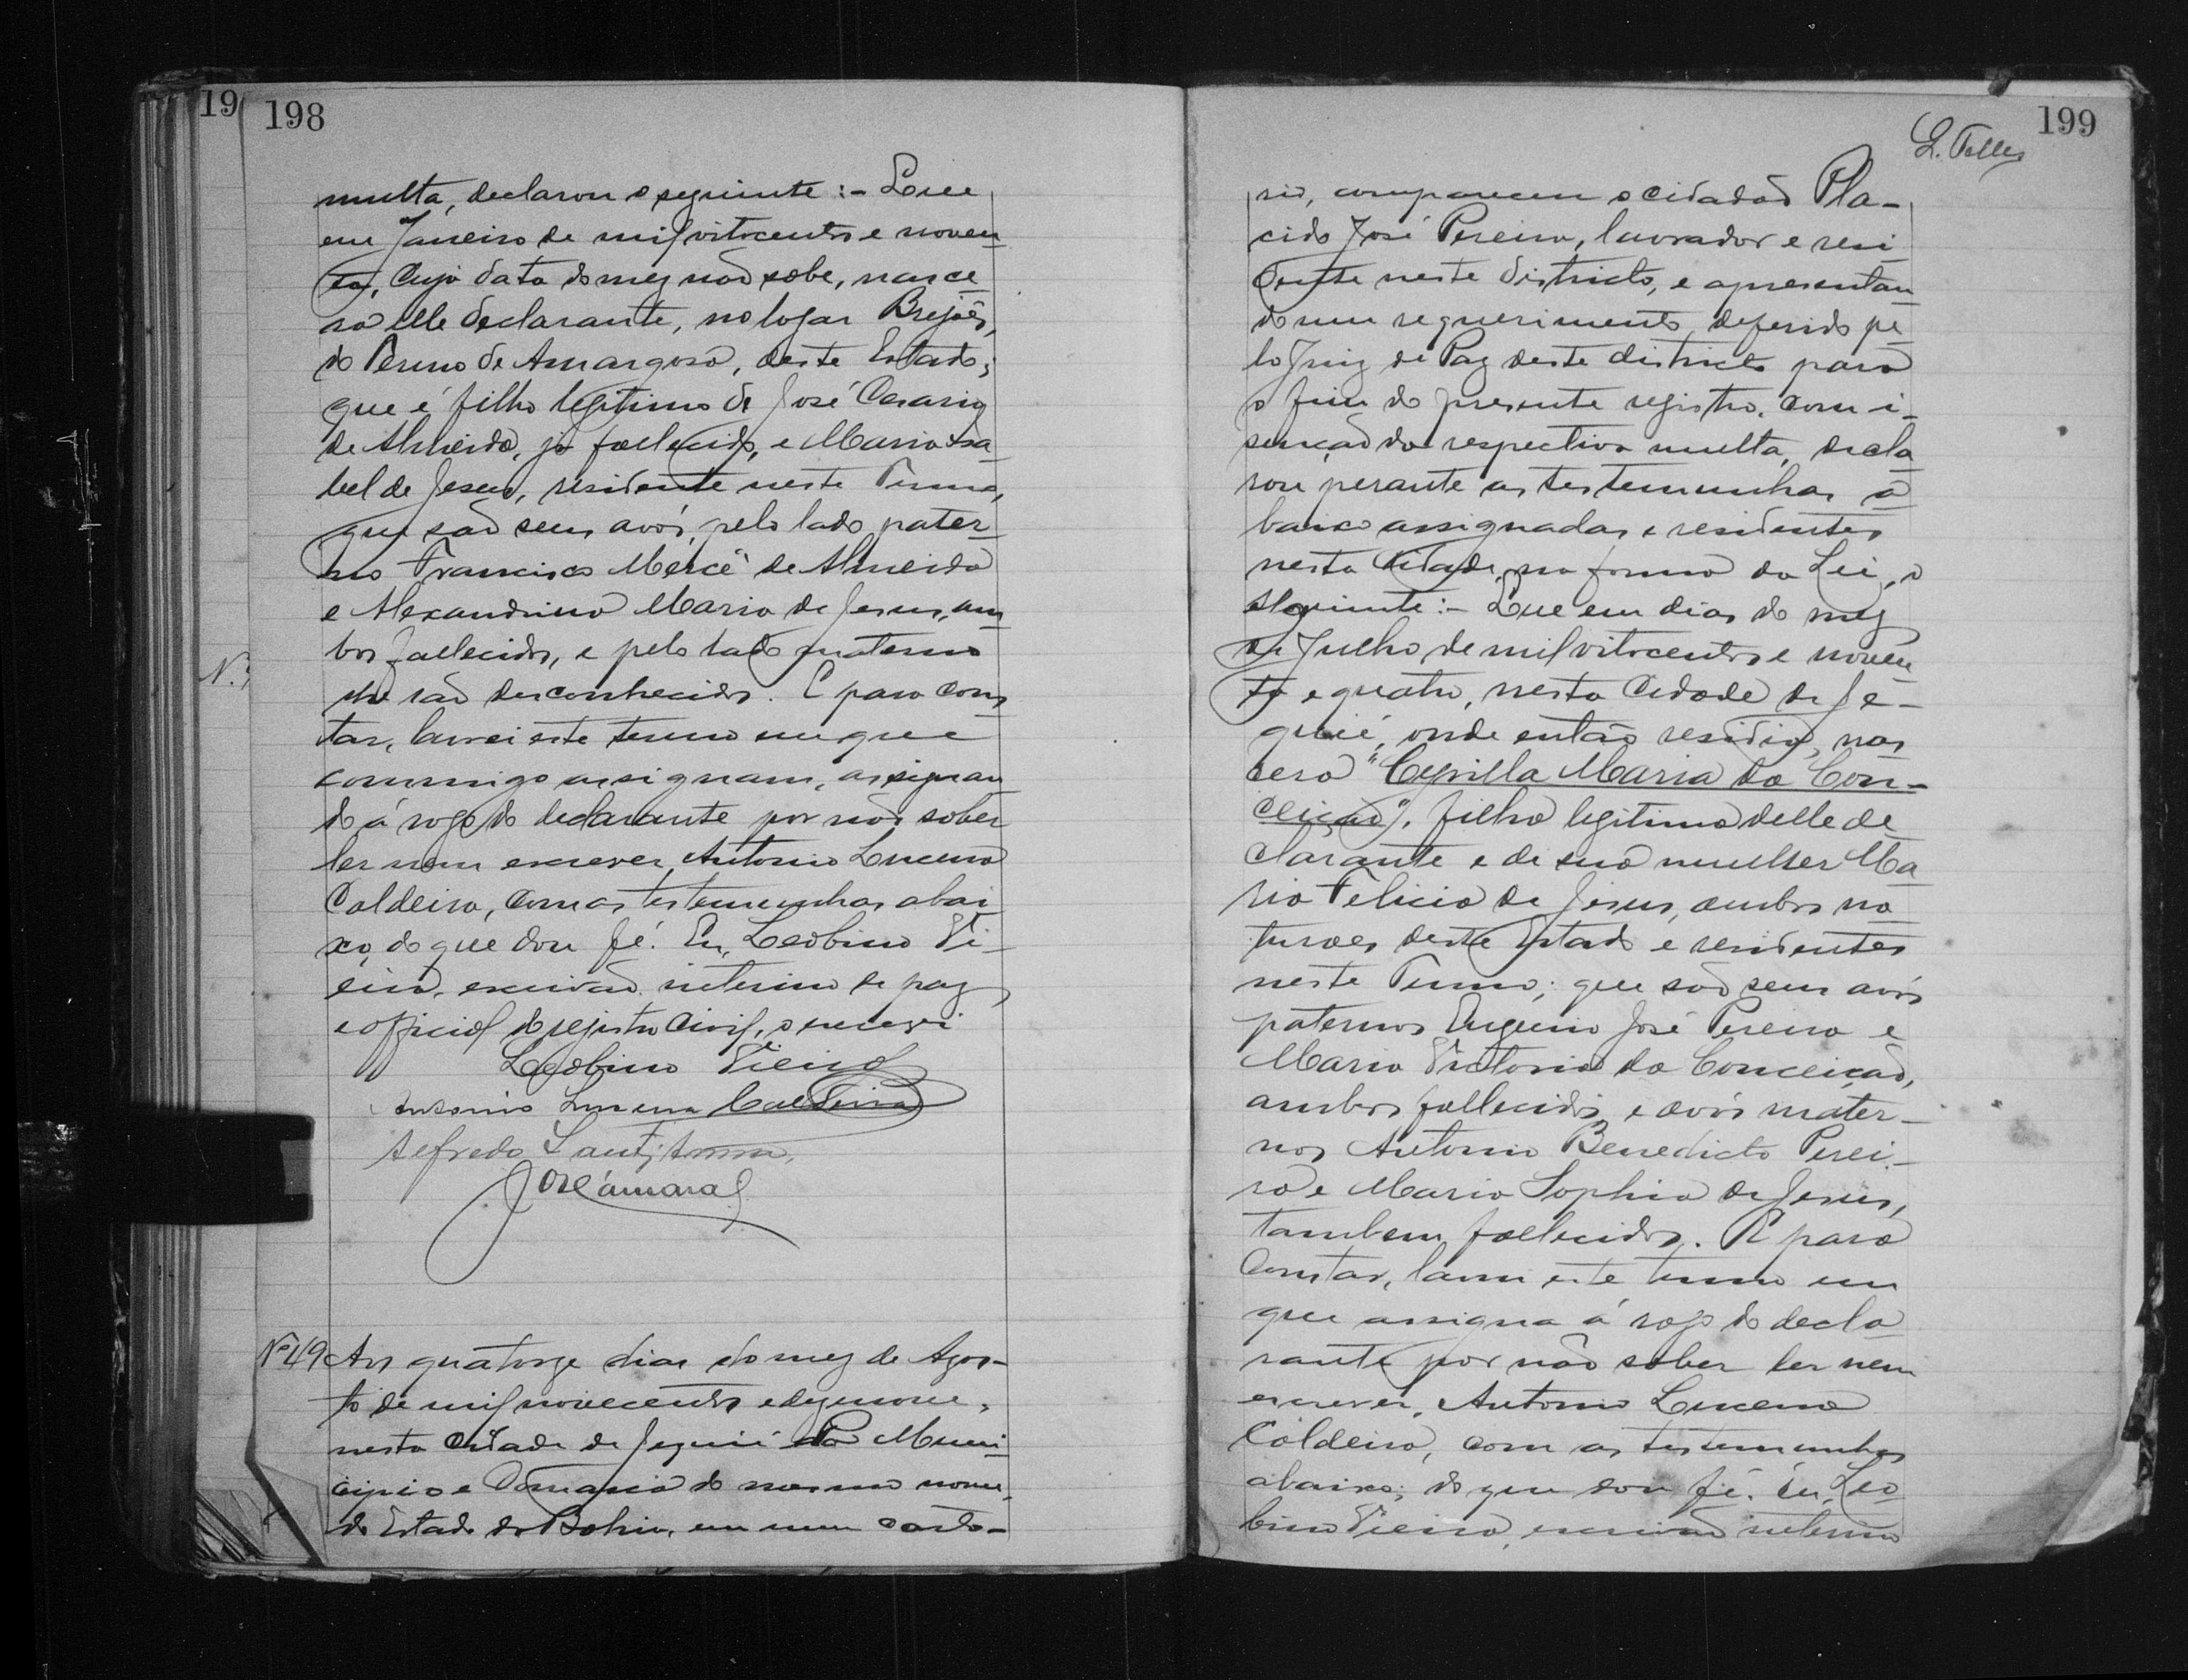 19 198
multa, declarou o seguinte:- Que
em Janeiro de mil oitocentos e noven
ta, cuja data do mez não sabe, nasce
ra elle declarante, no logar Brejões,
do Termo de Amargosa, deste Estado;
que é filho legitimo de José Cesario
de Almeida, já fallecido, e Maria Isa
bel de Jesus, residente neste Termo,
que são seus avós, pelo lado pater
no Francisco Mercê de Almeida
e Alexandrina Maria de Jesus, am
bos fallecidos, e pelo lado materno
lhe são desconhecidos. E para cons
tar, lavrei este termo em que
commigo assignam, assignan
do á rogo do declarante por não saber
ler nem escrever Antonio Lucena
Caldeira, com as testemunhas abai
xo, do que dou fé. Eu, Leobino Vi-
eira, escrivão interino de paz
e official do registro civil, o escrevi
Leobino Vieira
Antonio Lucena Caldeira
Alfredo
José Amaral
Nº 49 Aos quatorze dias do mez de Agos-
to de mil novecentos e dezenove,
nesta Cidade de Jequié do Muni
cipio e Comarca do mesmo nome,
do Estado da Bahia, em meu carto-
199
L. Telles
rio, compareceu o cidadão Pla-
cido José Pereira, lavrador e resi
dente neste districto, e apresentan
do um requerimento deferido pe
lo Juiz de Paz deste districto para
o fim do presente registro, com i-
senção da respectiva multa, decla
rou perante as testemunhas a
baixo assignadas e residentes
nesta Cidade, na forma da Lei, o
seguinte:- Que em dias do mez
de Julho de mil oitocentos e noven
ta e quatro, nesta Cidade de Je-
quié, onde então residia, nas
cera "Cyrilla Maria da Con-
ceição", filha legitima delle de
clarante e de sua mulher Ma
ria Felicia de Jesus, ambos na
turaes deste Estado e residentes
neste Termo; que são seus avós
paternos Eugenio José Pereira e
Maria Victoria da Conceição,
ambos fallecidos, e avós mater-
nos Antonio Benedicto Perei-
ra e Maria Sophia de Jesus,
tambem fallecidos. E para
constar, lavrei este termo em
que assigna á rogo do decla
rante por não saber ler nem
escrever, Antonio Lucena
Caldeira, com as testemunhas
abaixo; do que dou fé. Eu, Leo
bino Vieira, escrivão interino